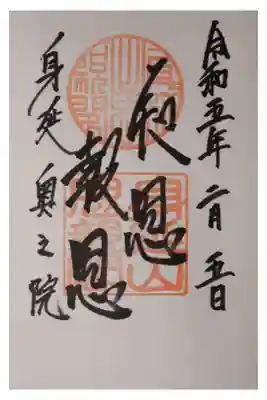 令和五年 二月 五日
知恩
報恩
身延 奥之院